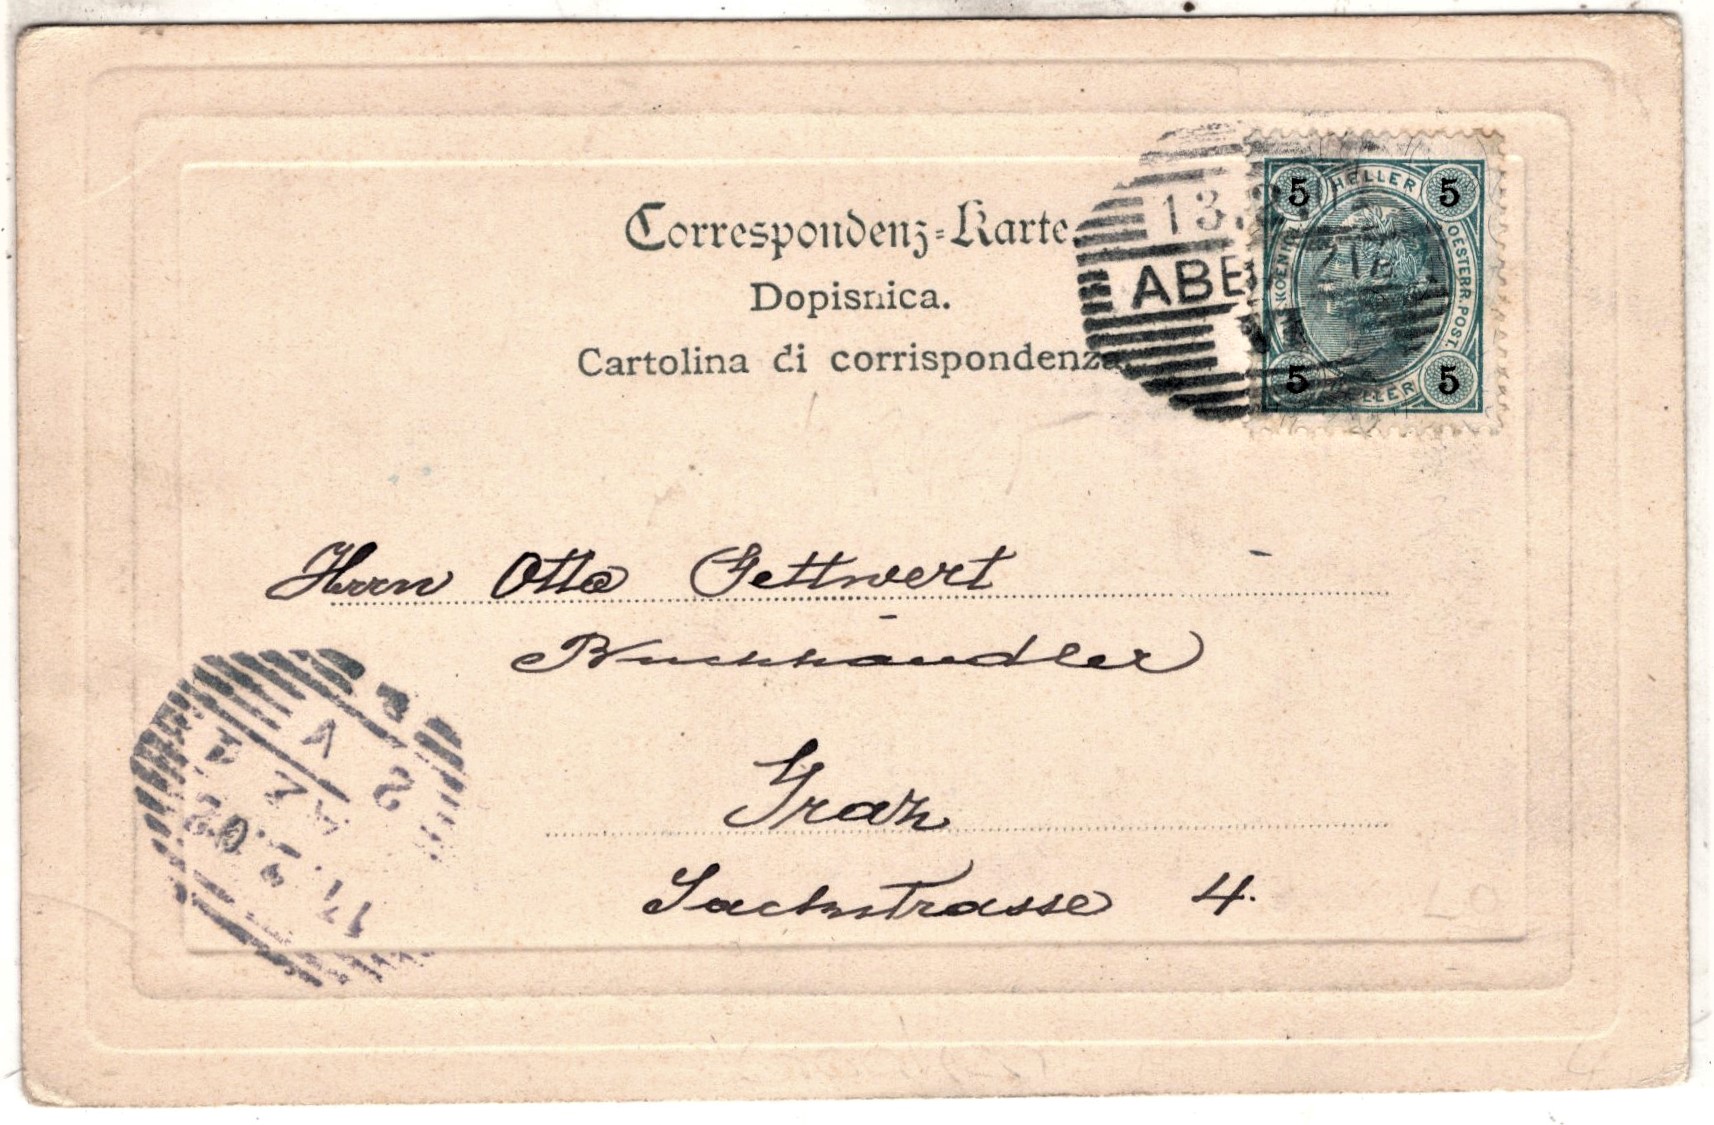 Correspondenz-Karte.
Dopisnica.
Cartolina di corrispondenza.
5 HELLER 5
KOENIGL.
OESTERR. POST.
5 HELLER 5
13.
ABB
Herrn Otto Gettwert
Buchhändler
Graz
Sackstrasse 4.